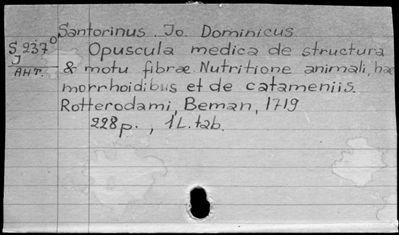 Santorinus Jo. Dominicus
S 237⁰ Opuscula medica de structura
J & motu fibræ Nutritione animali, hæ
АНТ. morrhoidibus et de catameniis.
Rotterodami, Beman, 1719
228 p., 1 L. tab.